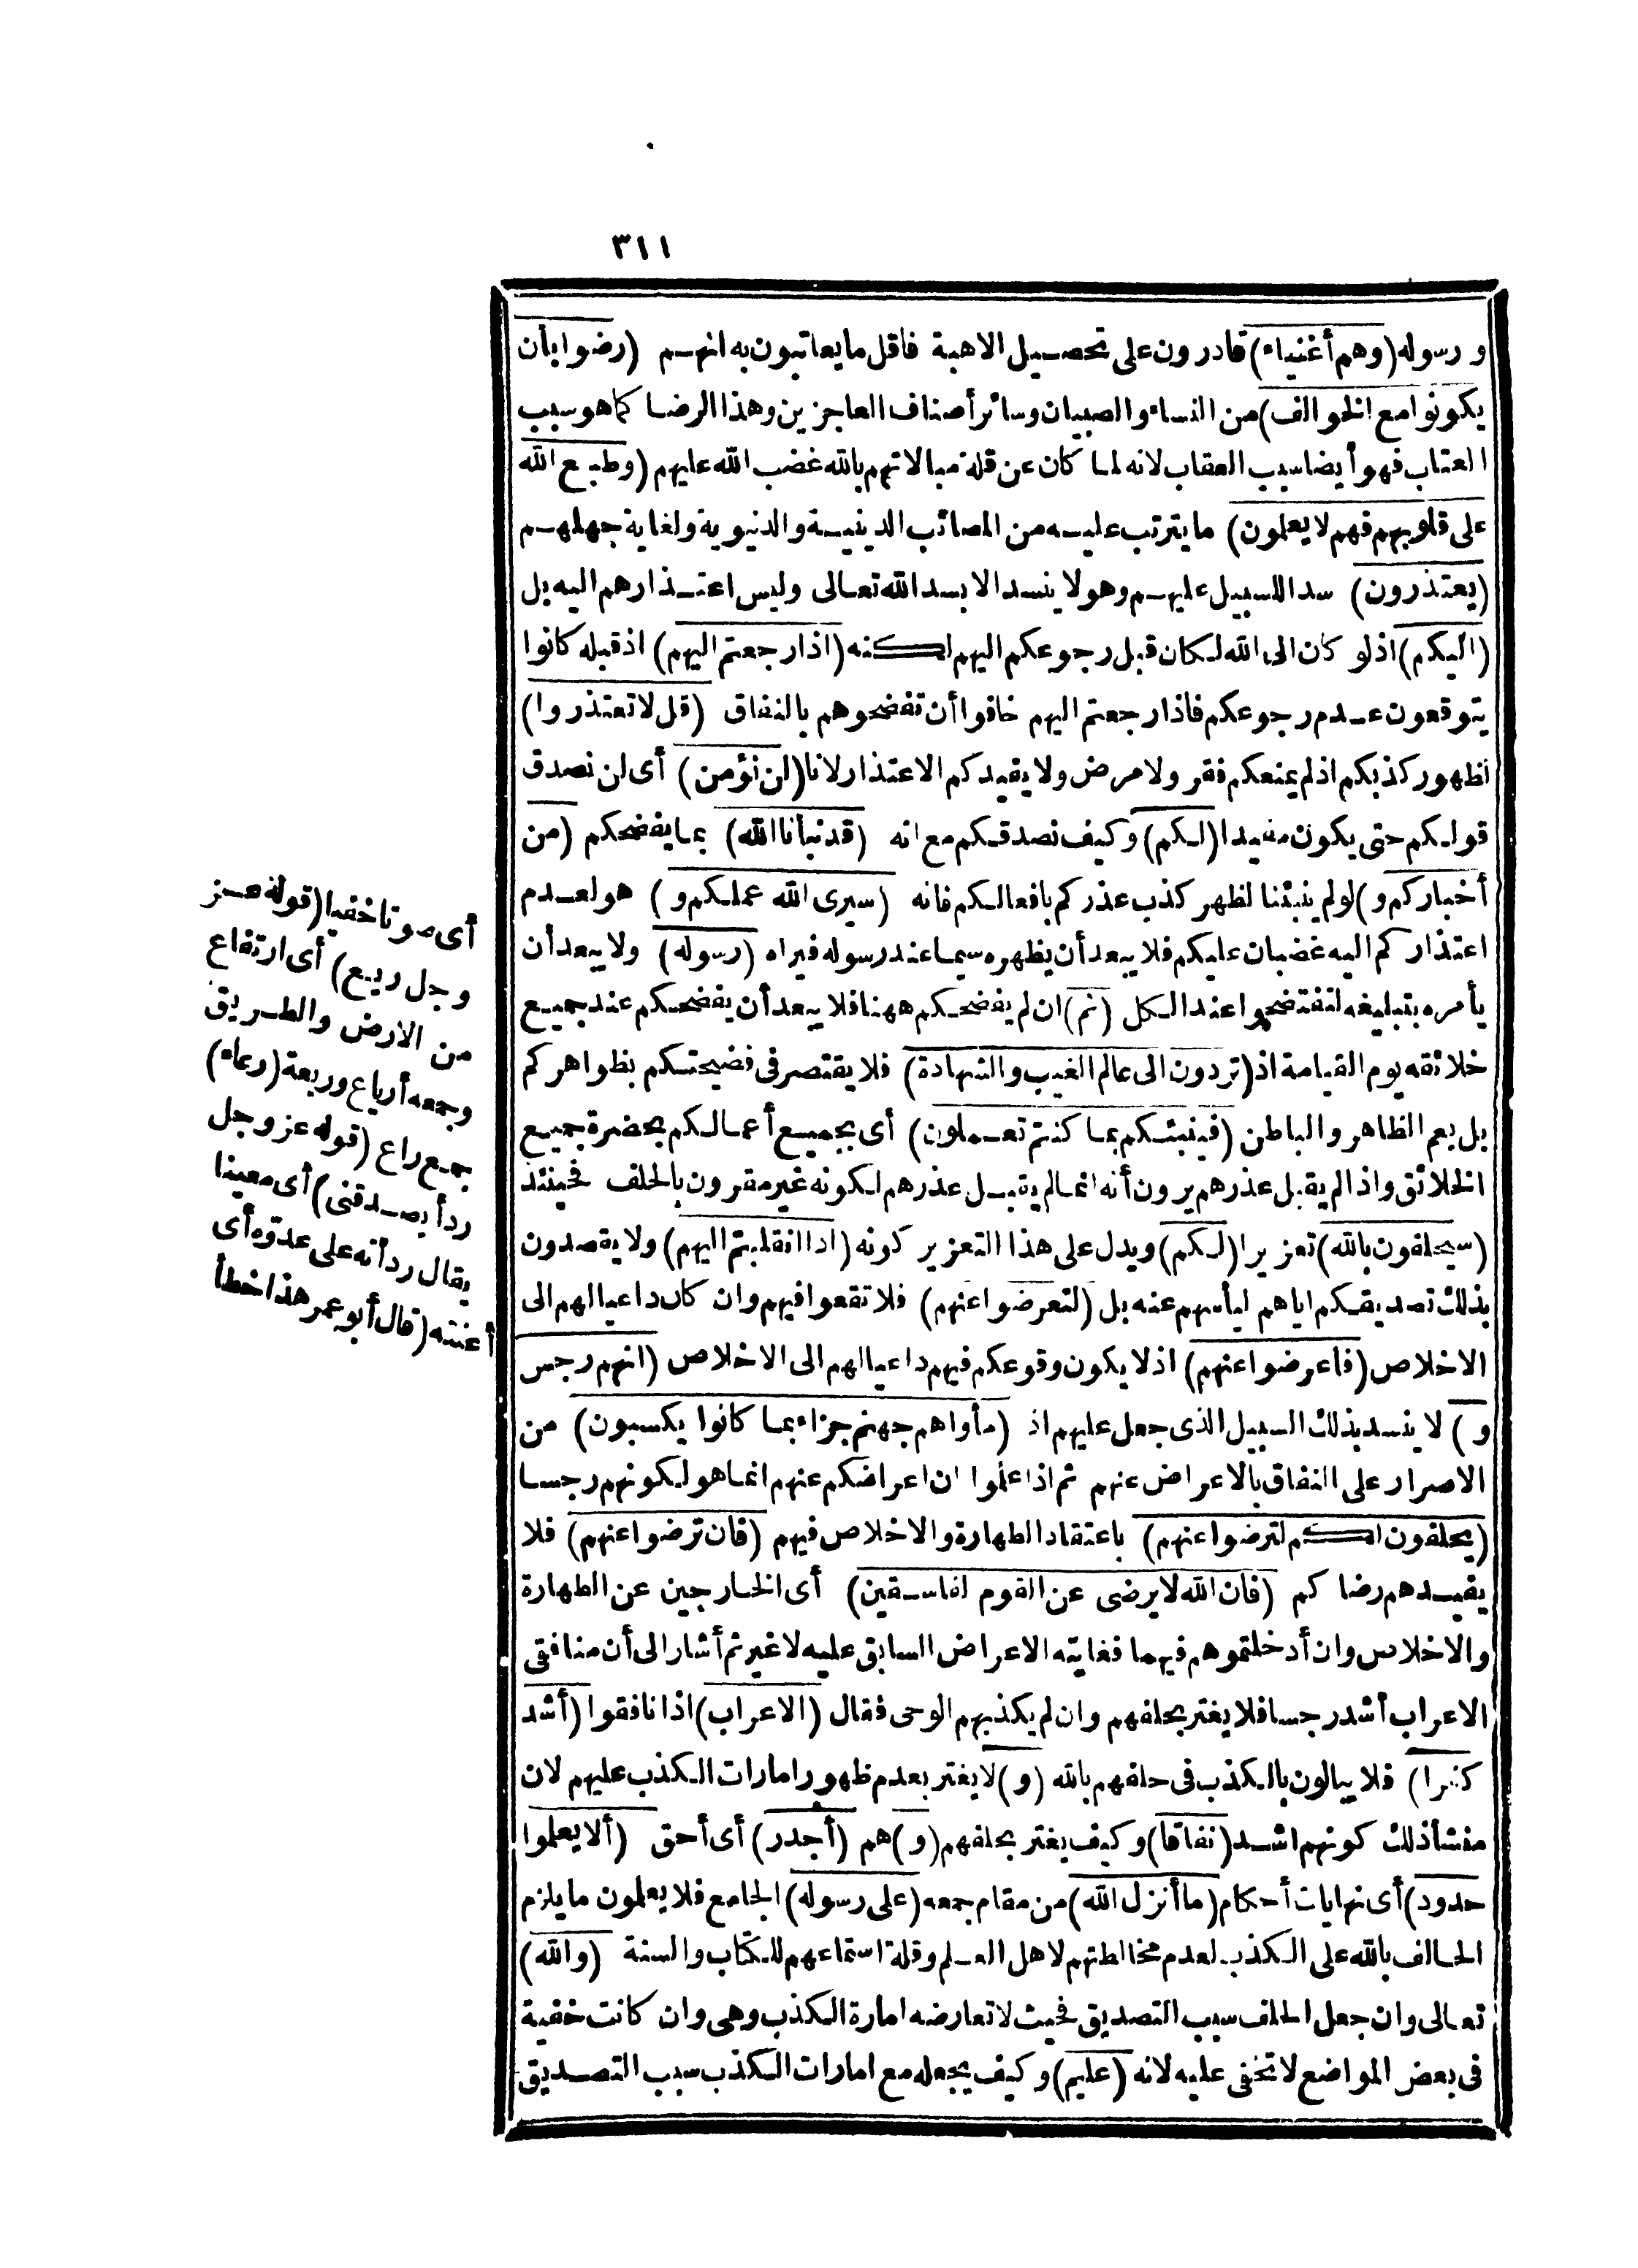 ٣١١
ورسوله (وهم أغنياء) قادرون على تحصيل الاهبة فاقل ما يعاتبون به انهم (رضوا بأن
يكونوا مع الخوالف) من النساء والصبيان وسائر أصناف العاجزين وهذا الرضا كما هو سبب
العتاب فهو أيضا سبب العقاب لانه لما كان عن قلة مبالاتهم بالله غضب الله عليهم (وطبع الله
على قلوبهم فهم لا يعلمون) ما يترتب عليه من المصائب الدينية والدنيوية ولغاية جهلهم
(يعتذرون) سدا للسبيل عليهم وهو لا ينسد الا بسد الله تعالى وليس اعتذارهم اليه بل
(اليكم) اذ لو كان الى الله لكان قبل رجوعكم اليهم لكنه (اذا رجعتم اليهم) اذ قبله كانوا
يتوقعون عدم رجوعكم فاذا رجعتم اليهم خافوا أن تفضحوهم بالنفاق (قل لا تعتذروا)
لظهور كذبكم اذ لم يمنعكم فقر ولا مرض ولا يفيدكم الاعتذار لانا (لن نؤمن) أى لن نصدق
قولكم حتى يكون مفيدا (لكم) وكيف نصدقكم مع انه (قد نبأنا الله) بما يفضحكم (من
أخباركم و) لو لم ينبئنا لظهر كذب عذركم بافعالكم فانه (سيرى الله عملكم و) هو لعدم
اعتذاركم اليه غضبان عليكم فلا يبعد أن يظهره سيما عند رسوله فيراه (رسوله) ولا يبعد أن
يأمره بتبليغه لتفتضحوا عند الكل (ثم) ان لم يفضحكم ههنا فلا يبعد أن يفضحكم عند جميع
خلائقه يوم القيامة اذ (تردون الى عالم الغيب والشهادة) فلا يقتصر فى فضيحتكم بظواهركم
بل يعم الظاهر والباطن (فينبئكم بما كنتم تعملون) أى بجميع أعمالكم بحضرة جميع
الخلائق واذا لم يقبل عذرهم يرون أنه انما لم يقبل عذرهم لكونه غير مقرون بالحلف فحينئذ
(سيحلفون بالله) تعزيرا (لكم) ويدل على هذا التعزير كونه (اذا انقلبتم اليهم) ولا يقصدون
بذلك تصديقكم اياهم ليأسهم عنه بل (لتعرضوا عنهم) فلا تقعوا فيهم وان كان داعيا لهم الى
الاخلاص (فاعرضوا عنهم) اذ لا يكون وقوعكم فيهم داعيا لهم الى الاخلاص (انهم رجس
و) لا ينسد بذلك السبيل الذى جعل عليهم اذ (مأواهم جهنم جزاء بما كانوا يكسبون) من
الاصرار على النفاق بالاعراض عنهم ثم اذا علموا ان اعراضكم عنهم انما هو لكونهم رجسا
(يحلفون لكم لترضوا عنهم) باعتقاد الطهارة والاخلاص فيهم (فان ترضوا عنهم) فلا
يفيدهم رضاكم (فان الله لا يرضى عن القوم الفاسقين) أى الخارجين عن الطهارة
والاخلاص وان أدخلتموهم فيهما فغايته الاعراض السابق عليه لا غير ثم أشار الى أن منافقى
الاعراب أشد رجسا فلا يغتر بحلفهم وان لم يكذبهم الوحى فقال (الاعراب) اذا نافقوا (أشد
كفرا) فلا يبالون بالكذب فى حلفهم بالله (و) لا يغتر بعدم ظهور امارات الكذب عليهم لان
منشأ ذلك كونهم اشد (نفاقا) وكيف يغتر بحلفهم (و) هم (أجدر) أى أحق (ألا يعلموا
حدود) أى نهايات أحكام (ما أنزل الله) من مقام جمعه (على رسوله) الجامع فلا يعلمون ما يلزم
الحالف بالله على الكذب لعدم مخالطتهم لاهل العلم وقلة استماعهم للكتاب والسنة (والله)
تعالى وان جعل الحلف سبب التصديق فحيث لا تعارضه امارة الكذب وهى وان كانت خفية
فى بعض المواضع لا تخفى عليه لانه (عليم) وكيف يجعله مع امارات الكذب سبب التصديق
أى صوتا خفيا (قوله عز
وجل ريع) أى ارتفاع
من الارض والطريق
وجمعه أرياع وريعة (رعاء)
جمع راع (قوله عز وجل
ردأ يصدقنى) أى معينا
يقال ردأته على عدوّه أى
أعنته (قال أبو عمر هذا خطأ